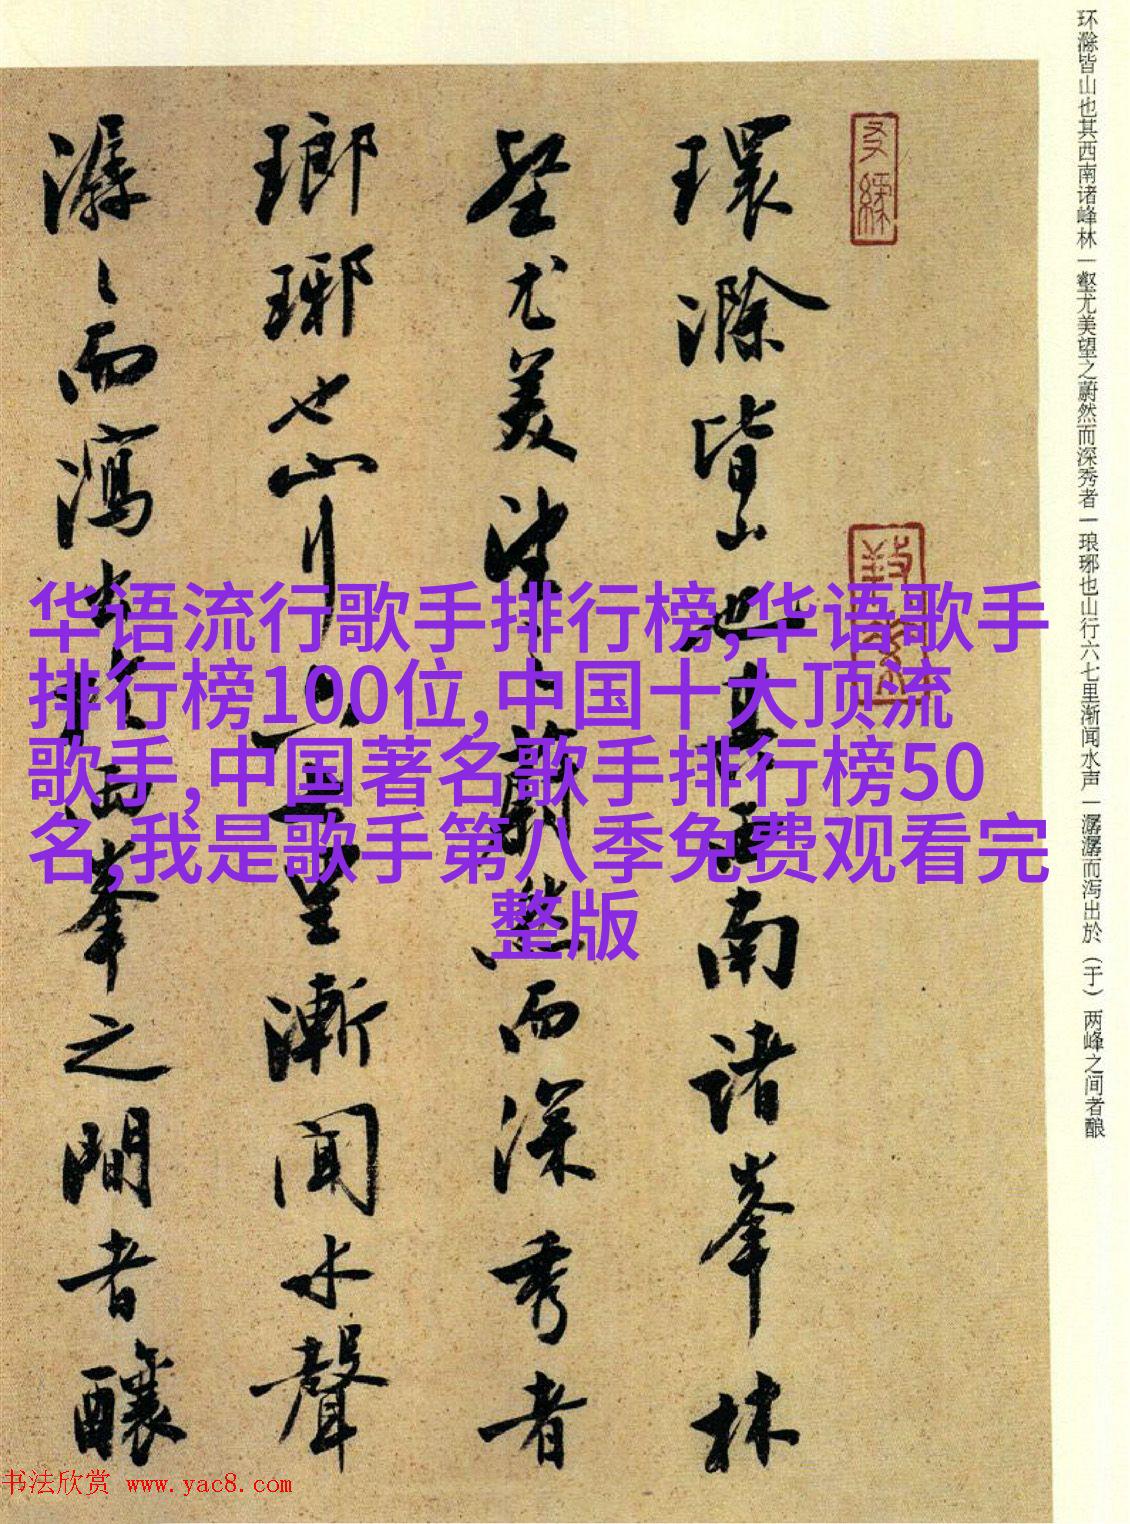 环滁皆山也其西南诸峰林一壑尤美望之蔚然而深秀者一琅琊也山行六七里渐闻水声一潺潺而泻出於（于）两峰之间者酿
環滁皆山也其西南諸峯林
壑尤美望之蔚然而深秀者
瑯琊也山行六七里漸聞水聲
潺々而瀉出於兩峯之間者釀
华语流行歌手排行榜,华语歌手
排行榜100位,中国十大顶流
歌手,中国著名歌手排行榜50
名,我是歌手第八季免费观看完
整版
书法欣赏 www.yac8.com